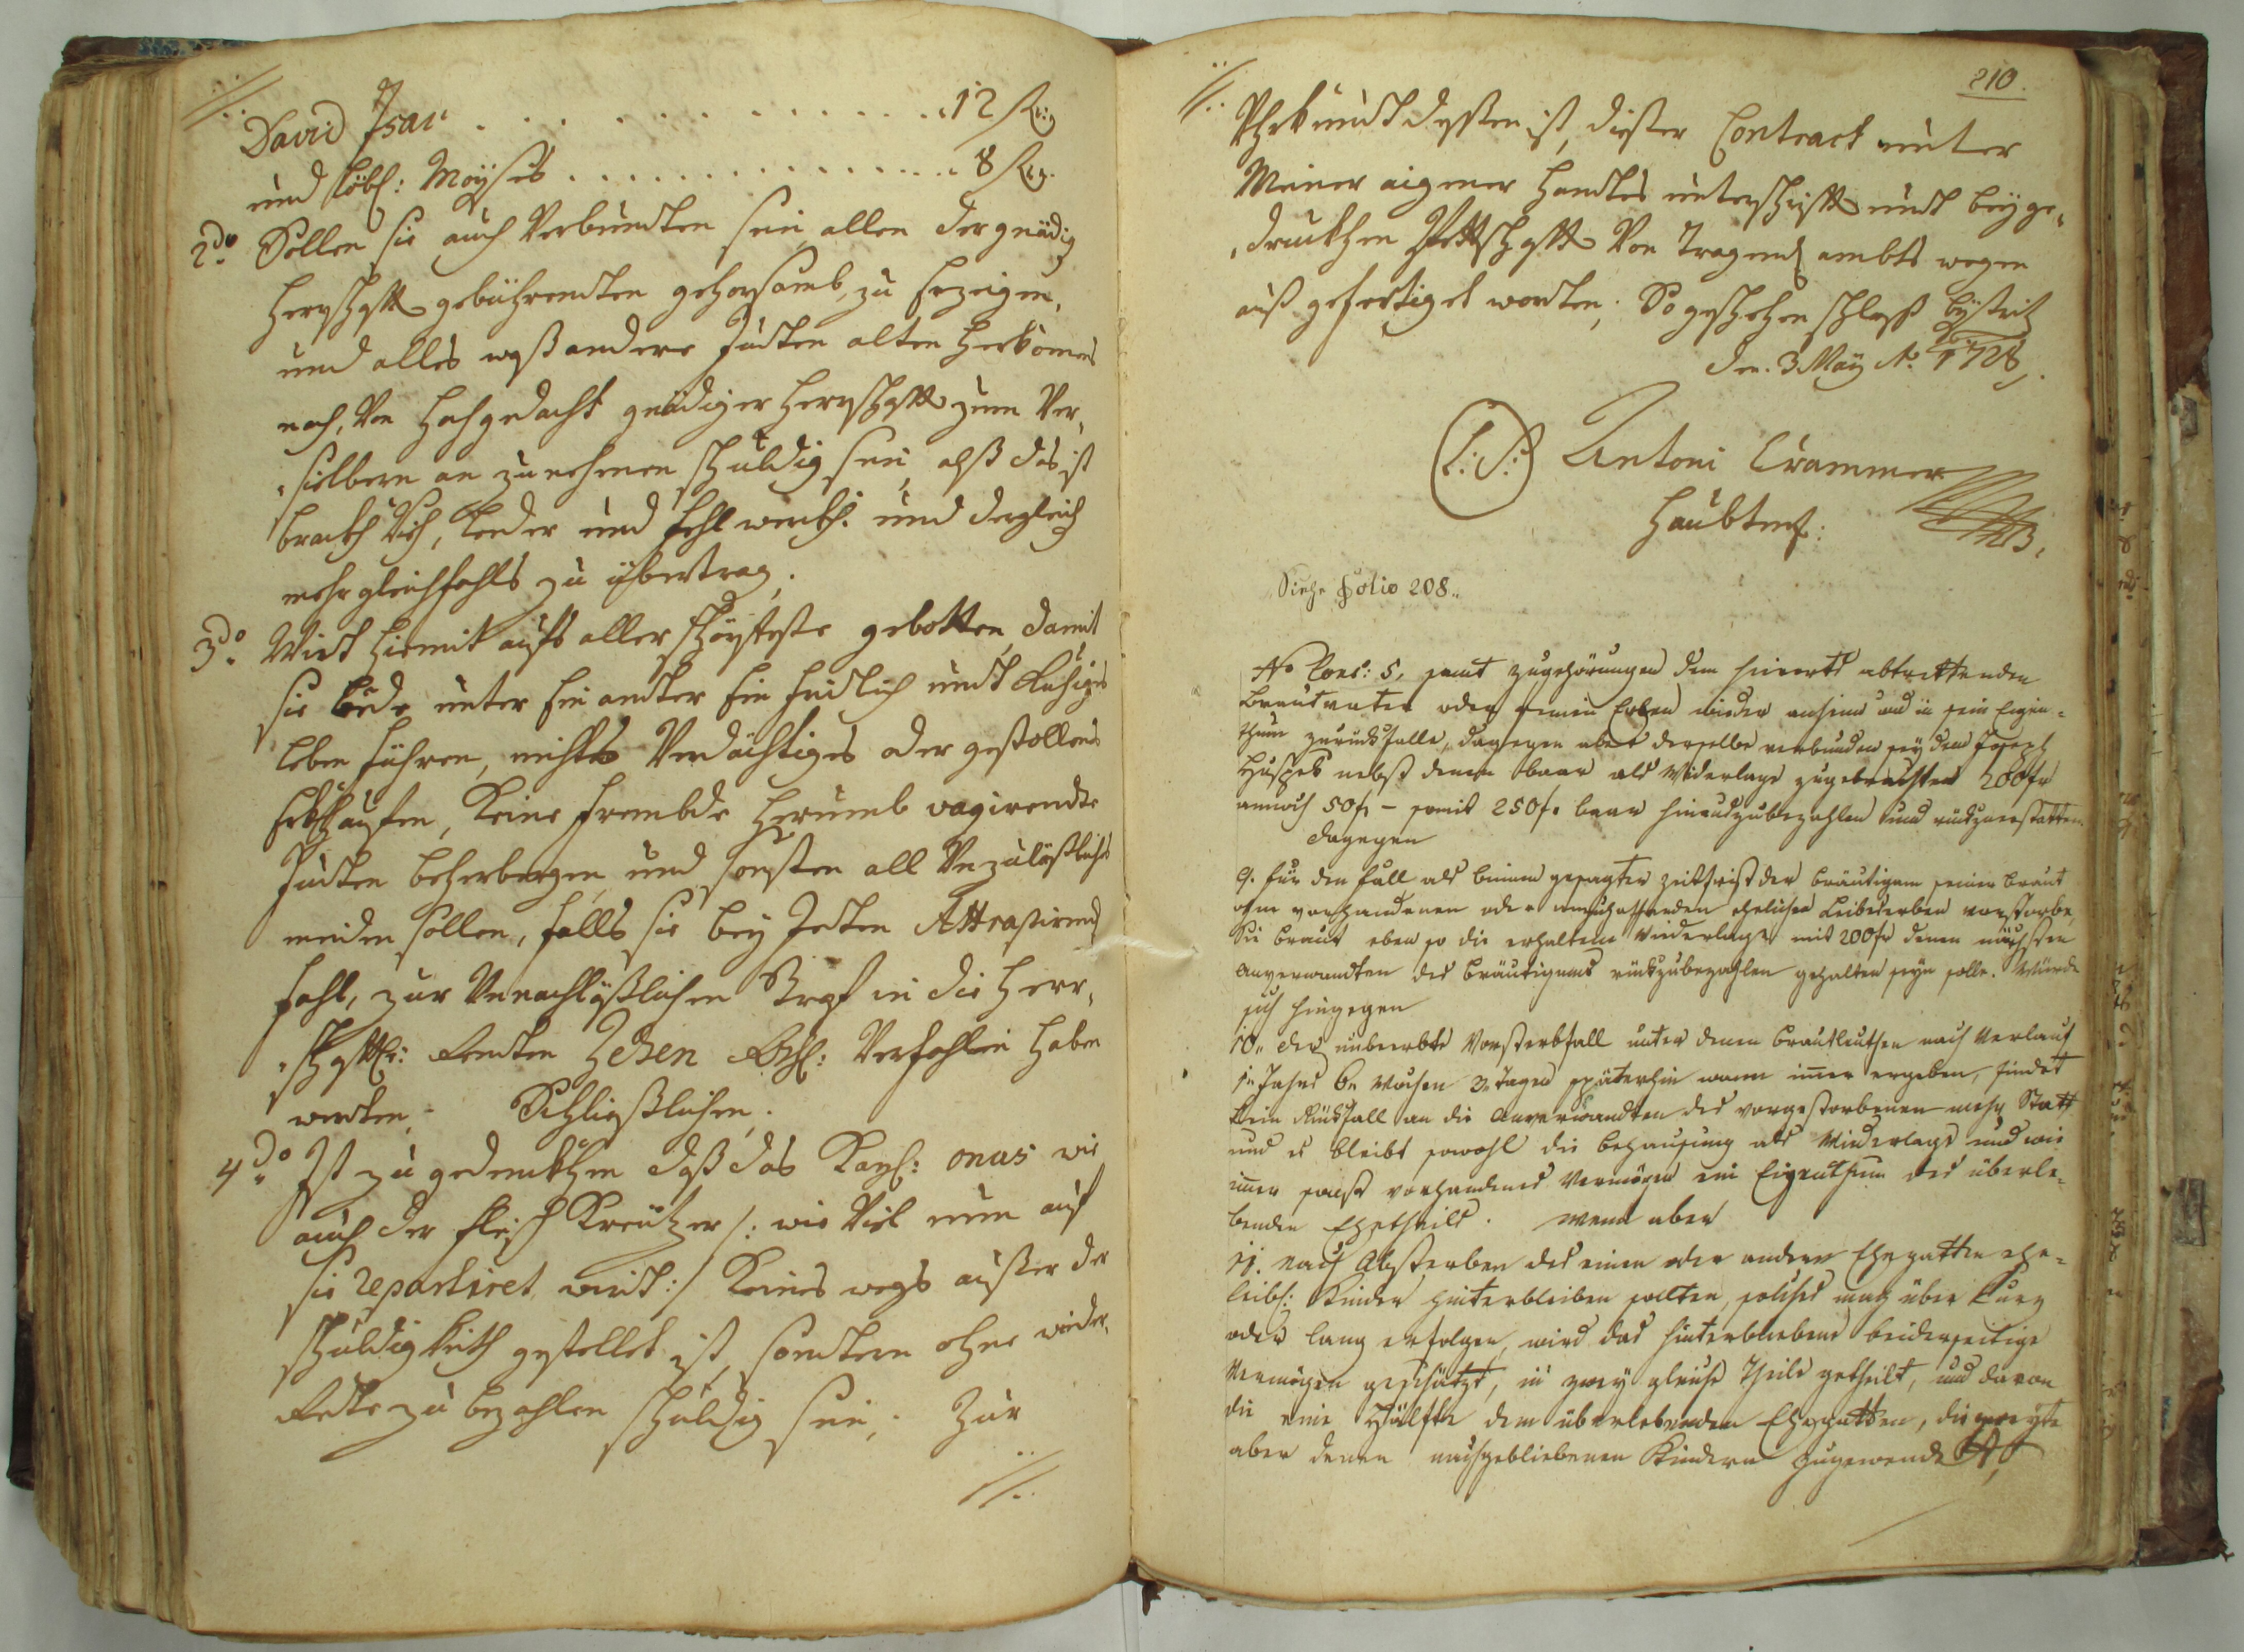 David Isac . . . . . . . . . . . . . . . 12 Rx:
und Löbl: Moÿses . . . . . . . . . . . . . . . 8 Rx.
2do Sollen sie auch Verbundten sein, allen der gnädig
Herrschafft gebührendten gehorsamb, zu Erzeigen,
und alles waß andere Judten alten Herkomens
nach, Von Hochgedacht gnädiger Herrschafft zum Ver-
silbern an zu nehmen schuldig sein, alß das ist
brackh Vieh, Leeder und Fehlwerkh: und dergleich
mehr gleichfahls zu übertrag.
3do Wirdt hiemit aufs aller schörffeste gebotten, damit
sie beede unter Ein andter Ein Fridlich undt Ruhiges
leben führen, nichts Verdächtiges oder gestollens
Erkhaufen, Keine frembde herumb vagirendte
Judten beherbergen, und sonsten all Unzuläßliches
meiden sollen, falls sie bey Jedten Attrapirend
fahl, zur Unnachläßlichen Straf in die Herr-
schafftl: Rendten Zehen Rthl: Verfahlen haben
werdten. Schließlichen,
4do Ist zu gedenckhen daß das Kayl: onus wie
auch der Fleisch Kreützer /: wie Viel nun auf
sie repartiret wirdt :/ Keines wegs ausser der
schuldigkeith gestellet ist, sondtern ohne wieder-
Redte zu bezahlen schuldig sein; Zur
//.
210.
Uhrkundt dessen ist, dießer Contract unter
Meiner aigener Handtes unterschrifft undt beÿ ge-
druckhen Pettschafft Von Tragend ambts wegen
auß gefertiget wordten; So geschehen schloß bÿstritz
den. 3 Maÿ Ao. 1728.
(L: S:) Antoni Crammer
Haubtm:
Siehe Folio 208.
No Cons: 5, samt Zugehörungen dem hinorts abtrettenden
Brautvater oder seinen Erben wieder anheim und in sein Eigen-
thum zurückfalle, dagegen aber derselbe verbunden sey dem Joseph
nebst denen baar als Widerlage zugebrachten 200 fr
annoch 50 fr – somit 250 fr baar hinauszubezahlen und rückzuerstatten.
dagegen
9. für den Fall als binnen gesagter Zeitfrist der Bräutigam seiner Braut
ohne vorhandenen oder ehelichen Leibeserben vorstürbe,
die Braut eben so die erhaltene Wiederlage mit 200 fr denen nächsten
Anverwandten des Bräutigams rückzubezahlen gehalten seyn solle. Würde
sich hingegen
10. der unbeerbte Vorsterbfall unter denen Brautleuthen nach Verlauf
1n Jahrs 6n Wochen 3n Tagen späterhin wann imer ergeben, findet
kein Rückfall an die Anverwandten des vorgestorbenen mehr Statt
und es bleibt sowohl die Behausung als Wiederlage und wie
imer sonst vorhandenes Vermögen ein Eigenthum des überle-
benden Ehetheils. Wenn aber
11. nach Absterben des einen oder andern Ehegatten ehe-
leibl: Kinder hinterbleiben sollten, solches mag über kurz
oder lang erfolgen, wird das hinterbliebene beiderseitige
Vermögen geschätzt, in zwey gleiche Theile getheilt, und davon
die eine Hälfte dem überlebenden Ehegatten, die zweyte
aber denen nachgebliebenen Kindern zugewendet,